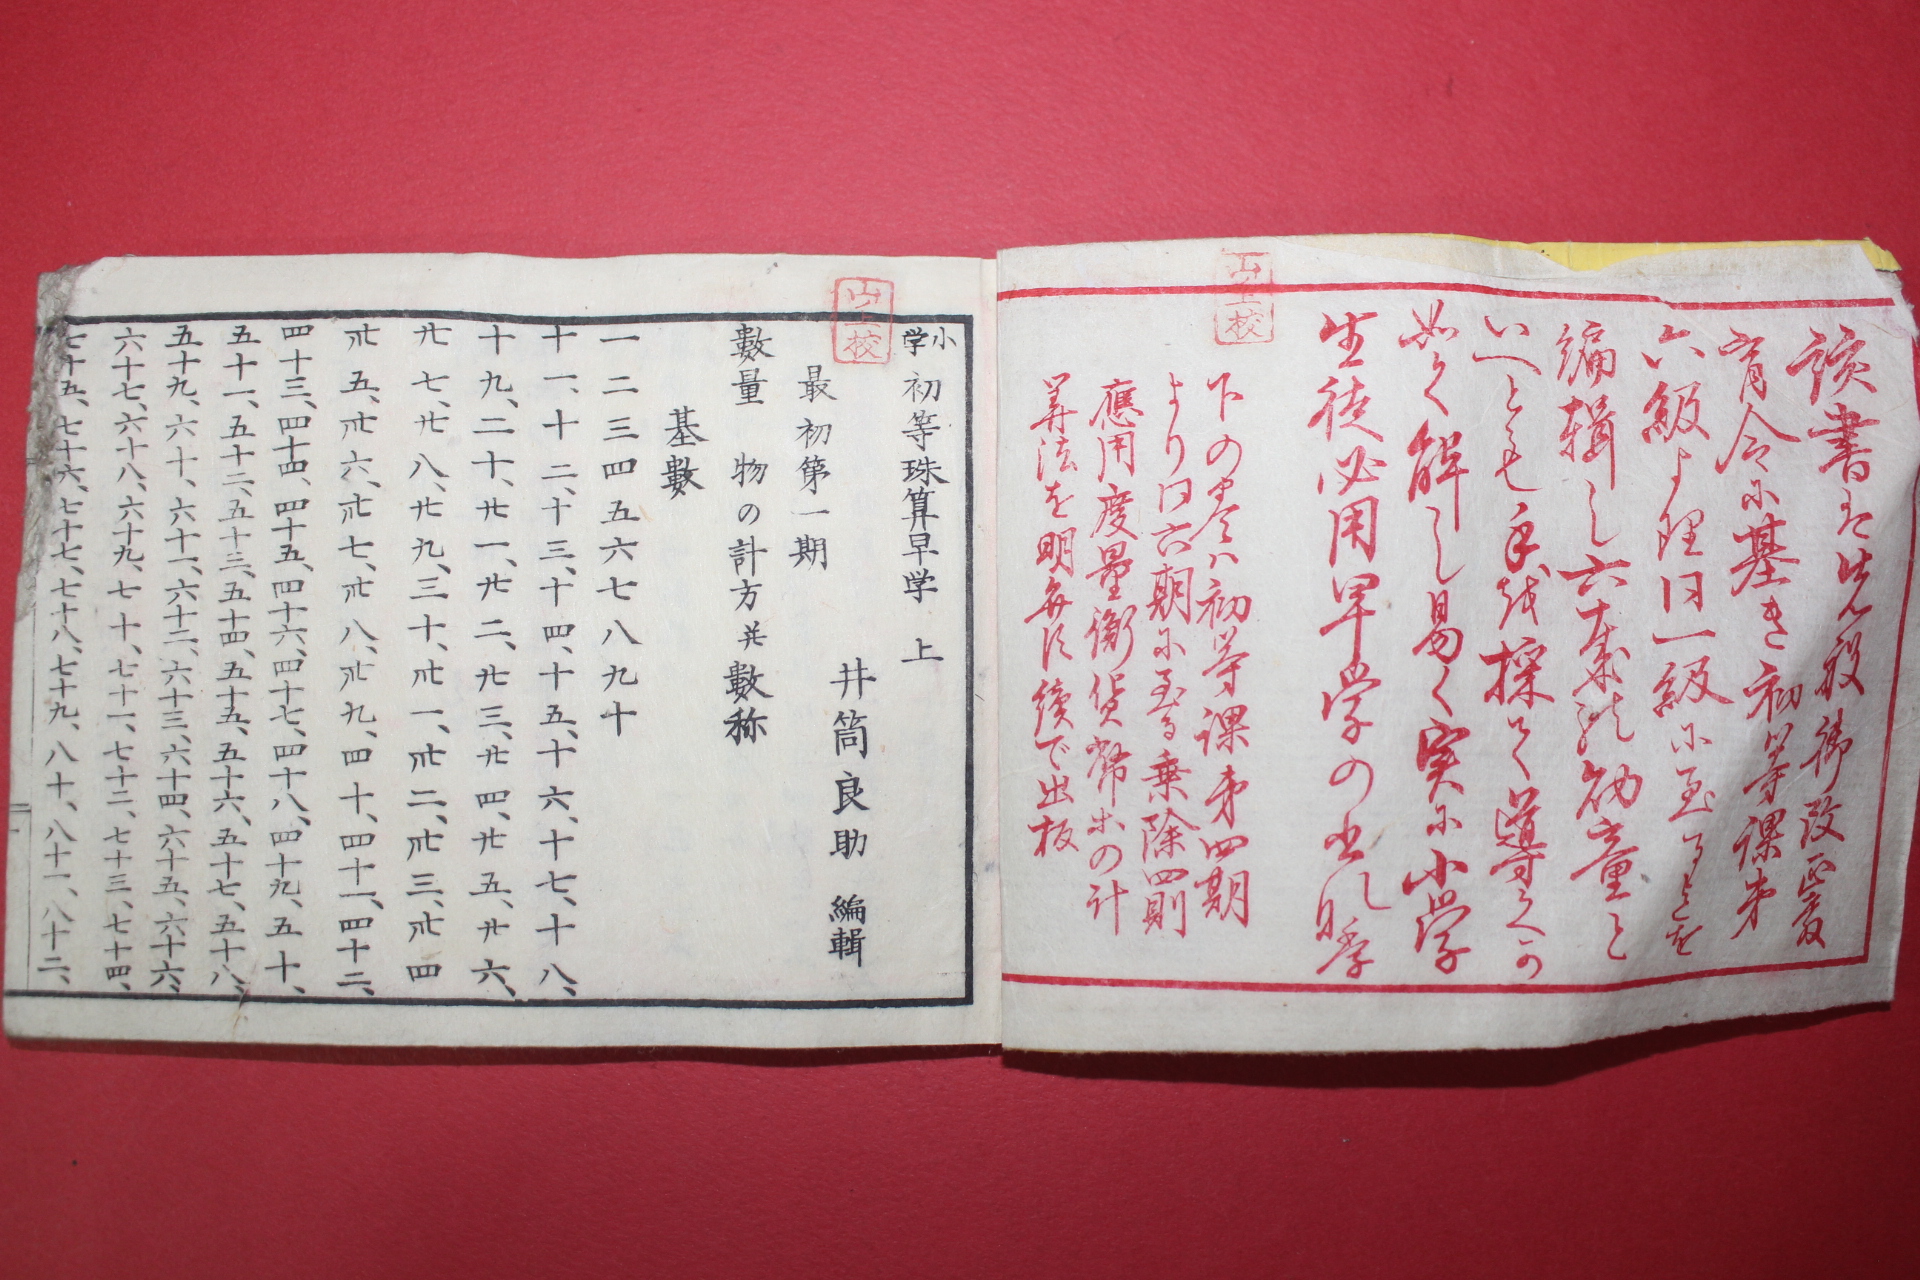 該書は先般御改正教
育令に基き初等課第
六級より同一級に至るまでを
編輯し六七歳の幼童と
いへとも手を採て導くか
如く解し易く実に小学
生徒必用早学の書れ
下の巻ハ初等課第四期
より同六期に至る乗除四則
應用度量衡貨幣等の計
算法を明弁し続て出板
山上校
山上校
小学初等珠算早学 上
井筒良助 編輯
最初第一期
數量 物の計方并數称
基數
一二三四五六七八九十
十一、十二、十三、十四、十五、十六、十七、十八、
十九、二十、廿一、廿二、廿三、廿四、廿五、廿六、
廿七、廿八、廿九、三十、卅一、卅二、卅三、卅四
卅五、卅六、卅七、卅八、卅九、四十、四十一、四十二、
四十三、四十四、四十五、四十六、四十七、四十八、四十九、五十、
五十一、五十二、五十三、五十四、五十五、五十六、五十七、五十八、
五十九、六十、六十一、六十二、六十三、六十四、六十五、六十六、
六十七、六十八、六十九、七十、七十一、七十二、七十三、七十四、
七十五、七十六、七十七、七十八、七十九、八十、八十一、八十二、